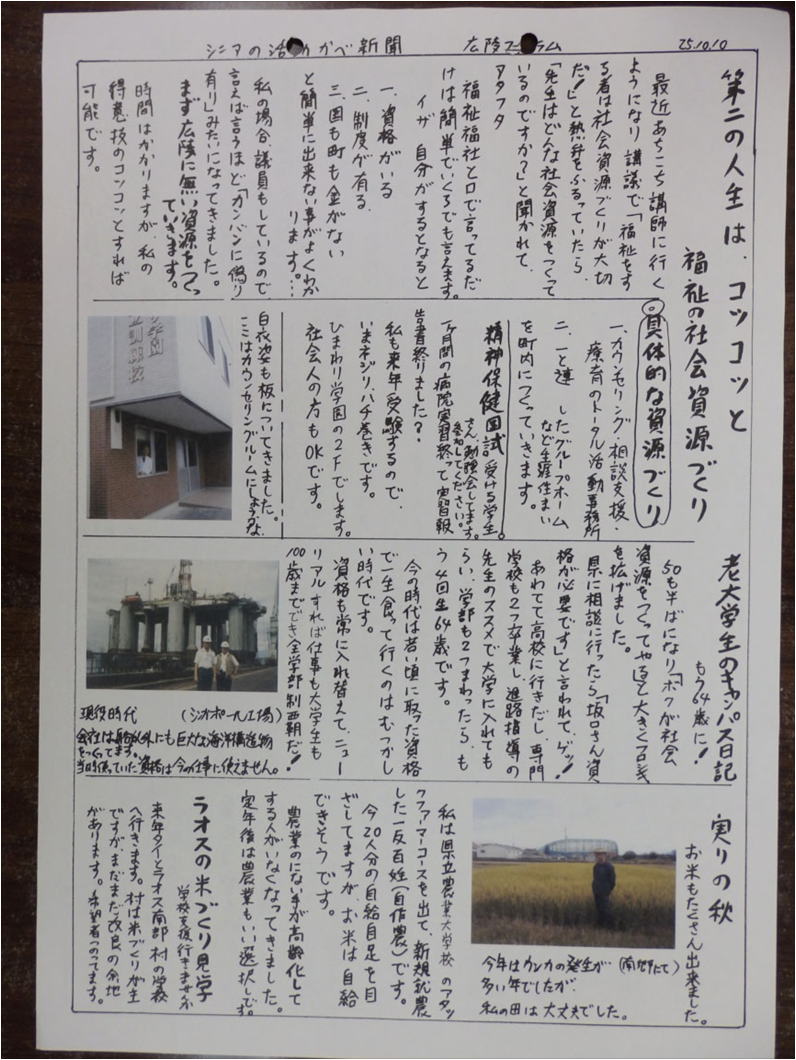 シニアの活 かべ新聞
広陵 ラム
25.10.10
第二の人生は、コツコツと
福祉の社会資源づくり
最近あちこち講師に行く
ようになり講議で「福祉をす
る者は社会資源づくりが大切
だ!」と熱弁をふるっていたら、
「先生はどんな社会資源をつくって
いるのですか?」と聞かれて、
アタフタ
福祉福祉と口で言ってるだ
けは簡単でいくらでも言えます。
イザ 自分がするとなると
一、資格がいる
二、制度が有る
三、国も町も金がない
と簡単に出来ない事がよくわか
ります。…
私の場合、議員もしているので、
言えば言うほど「カンバンに偽り
有り」みたいになってきました。
まず広陵に無い資源をつくっ
ていきます。
時間はかかりますが、私の
得意技のコツコツとすれば
可能です。
◎具体的な資源づくり
一、カウンセリング・相談支援・
療育のトータル活動事務所
二、一と連 したグループホーム
など生涯住まい
を町内につくっていきます。
精神保健国試 受ける学生
さん、勉強会してます。
参加してください。
1ヶ月間の病院実習終って実習報
告書終りました?
私も来年受験するので、
いまネジリハチ巻きです。
ひまわり学園の2Fでします。
社会人の方もOKです。
白衣姿も板についてきました。
ここはカウンセリングルームにしようかな
老大学生のキャンパス日記
もう64歳に!
50も半ばになり「ボクが社会
資源をつくってやる」と大きく口ふろしき
を拡げました。
県に相談に行ったら「坂口さん資
格が必要です」と言われて、ゲッ!
あわてて高校に行きだし、専門
学校も2つ卒業し、進路指導の
先生のススメで大学に入れても
らい、学部も2つまわったら、も
う4回生64歳です。
今の時代は若い頃に取った資格
で一生食って行くのはむつかし
い時代です。
資格も常に入れ替えて、ニュー
リアルすれば仕事も大学生も
100歳までできる全学部制覇だ!
現役時代 (シンガポール工場)
会社は船以外にも巨大な海洋構造物
をつくってます。
当時使っていた資格は今の仕事に使えません。
実りの秋
お米もたくさん出来ました。
今年はウンカの発生が (南郷にて)
多い年でしたが、
私の田は大丈夫でした。
私は県立農業大学校のアタッ
クファーマーコースを出て、新規就農
した一反百姓(自作農)です。
今20人分の自給自足を目
ざしてますが、お米は自給
できそうです。
農業のにない手が高齢化して
する人がいなくなってきました。
定年後は農業もいい選択しです。
ラオスの米づくり見学
学校支援行きませんか
来年タイとラオス南部村の学校
へ行きます。村は米づくりが主
ですが、まだまだ改良の余地
があります。希望者つのってます。